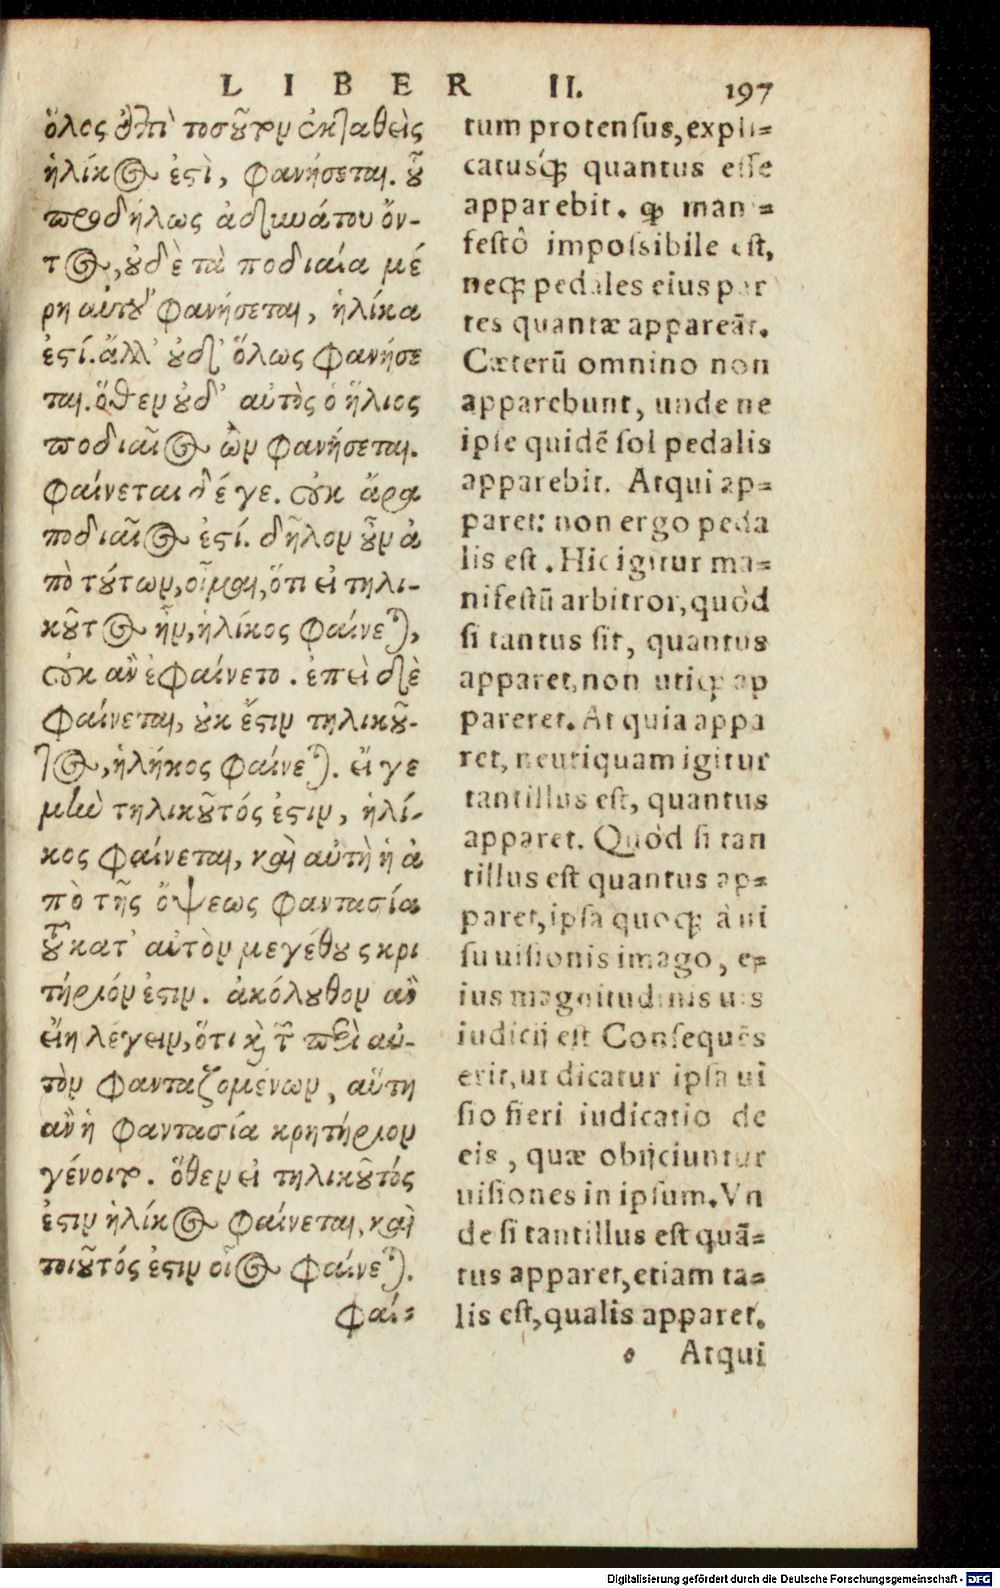 LIBER II. 197
ὅλος ἐπὶ τοσοῦτον ἐκταθεὶς
ἡλίκος ἐστὶ, φανήσεται. οὗ
προδήλως ἀδυνάτου ὄν-
τος, οὐδὲ τὰ ποδιαία μέ
ρη αὐτοῦ φανήσεται, ἡλίκα
ἐστί. ἀλλ' οὐδ' ὅλως φανήσε
ται. ὅθεν οὐδ' αὐτὸς ὁ ἥλιος
ποδιαῖος ὢν φανήσεται.
φαίνεται δέ γε. οὐκ ἄρα
ποδιαῖός ἐστί. δῆλον οὖν ἀ
πὸ τούτων, οἶμαι, ὅτι εἰ τηλι-
κοῦτος ἦν, ἡλίκος φαίνεται,
οὐκ ἂν ἐφαίνετο. ἐπεὶ δὲ
φαίνεται, οὐκ ἔστιν τηλικοῦ-
τος, ἡλήκος φαίνεται. εἴ γε
μὴν τηλικοῦτός ἐστιν, ἡλί-
κος φαίνεται, καὶ αὐτὴ ἡ ἀ
πὸ τῆς ὄψεως φαντασία
τοῦ κατ' αὐτὸν μεγέθους κρι
τήριόν ἐστιν. ἀκόλουθον ἂν
εἴη λέγειν, ὅτι καὶ τῶν περὶ αὐ-
τὸν φανταζομένων, αὕτη
ἂν ἡ φαντασία κρητήριον
γένοιτο. ὅθεν εἰ τηλικοῦτός
ἐστιν ἡλίκος φαίνεται, καὶ
τοιοῦτός ἐστιν οἷος φαίνεται.
φαί-
tum protensus, expli-
catusq́; quantus esse
apparebit. q; man =
festô impossibile est,
neq; pedales eius par
tes quantæ appareãt.
Cæterũ omnino non
apparebunt, unde ne
ipse quidẽ sol pedalis
apparebit. Atqui ap-
paret: non ergo peda
lis est. Hic igitur ma-
nifestũ arbitror, quòd
si tantus sit, quantus
apparet, non utiq; ap
pareret. At quia appa
ret, neutiquam igitur
tantillus est, quantus
apparet. Quòd si tan
tillus est quantus ap-
paret, ipsa quoq; à ui
su uisionis imago, e-
ius magnitudinis uis
iudicij est Consequẽs
erit, ut dicatur ipsa ui
sio fieri iudicatio de
eis, quæ obijciuntur
uisiones in ipsum. Vn
de si tantillus est quã-
tus apparet, etiam ta-
lis est, qualis apparet.
o Atqui
Digitalisierung gefördert durch die Deutsche Forschungsgemeinschaft - DFG